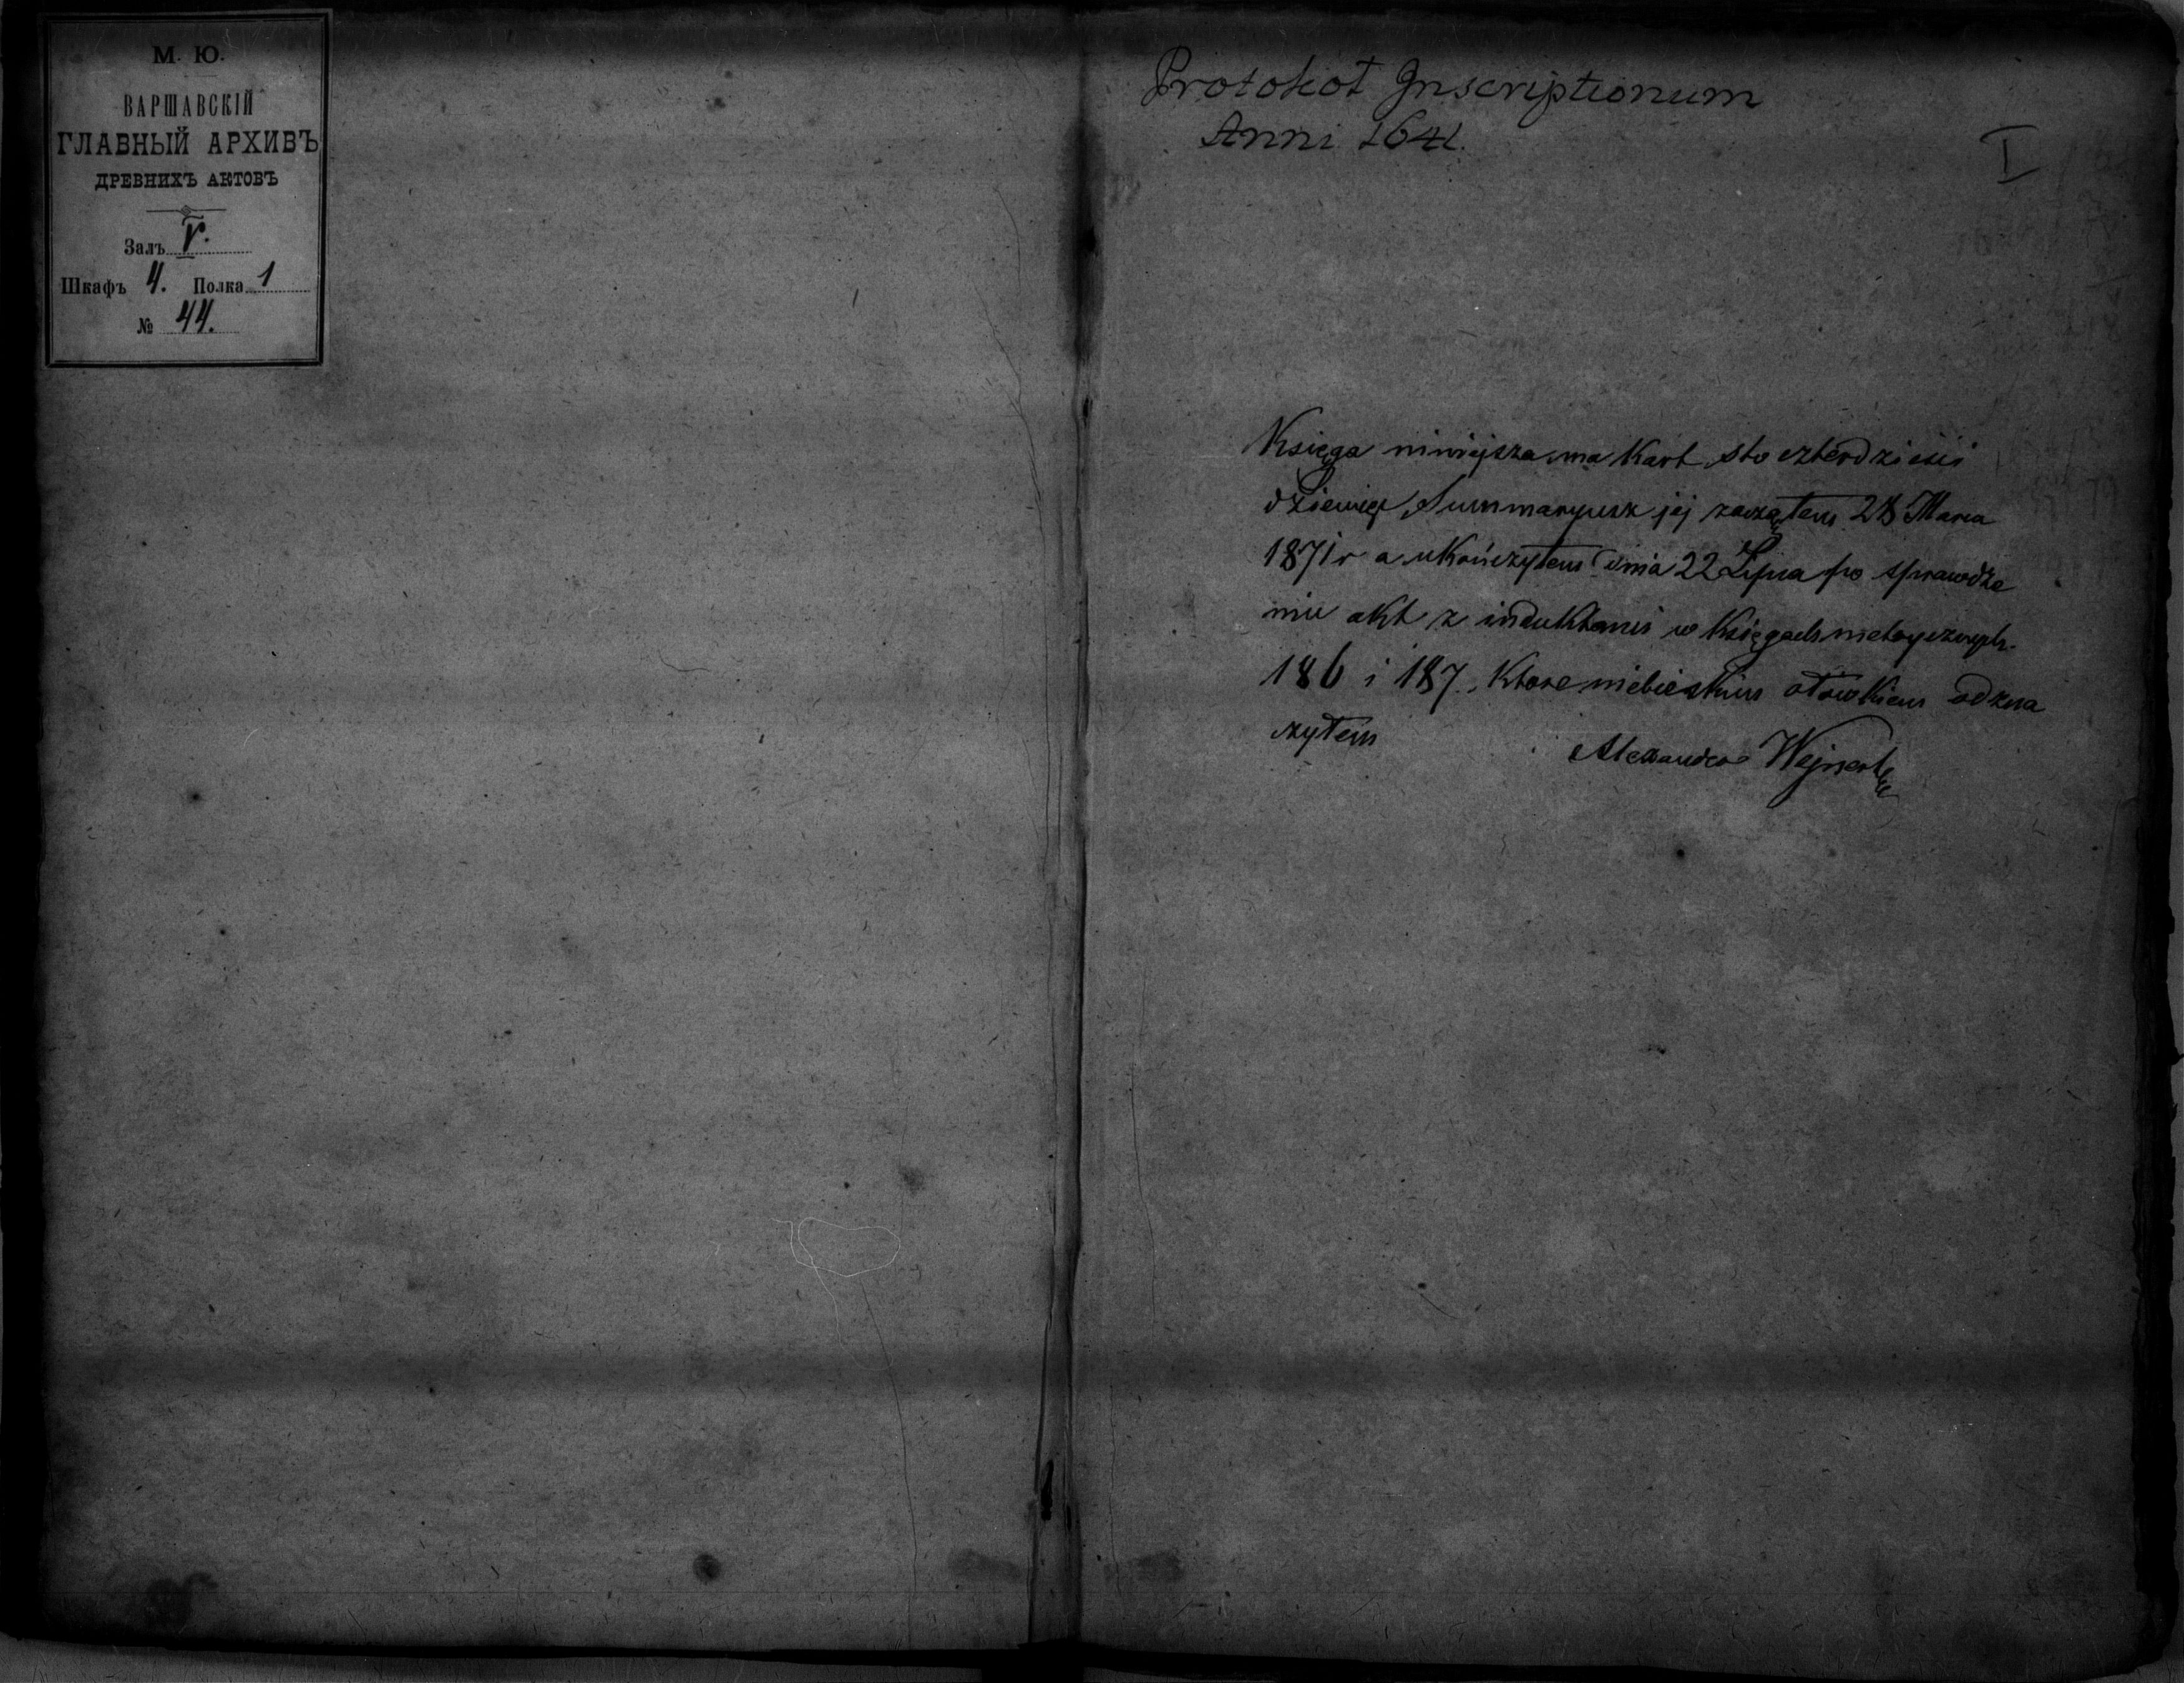 М. Ю.
ВАРШАВСКІЙ
ГЛАВНЫЙ АРХИВЪ
ДРЕВНИХЪ АКТОВЪ
Залъ V.
Шкафъ 4. Полка 1
№ 44.
Protokoł Inscriptionum
Anni 1641.
I
Księga niniejsza ma kart sto czterdzieści
dziewięć Summaryusz jej zacząłem 28 Marca
1871 r a ukończyłem dnia 22 Lipca po sprawdze
niu akt z induktami w Księgach metrycznych
186 i 187. które niebieskim ołówkiem odzna
czyłem
Alexander Wejnert